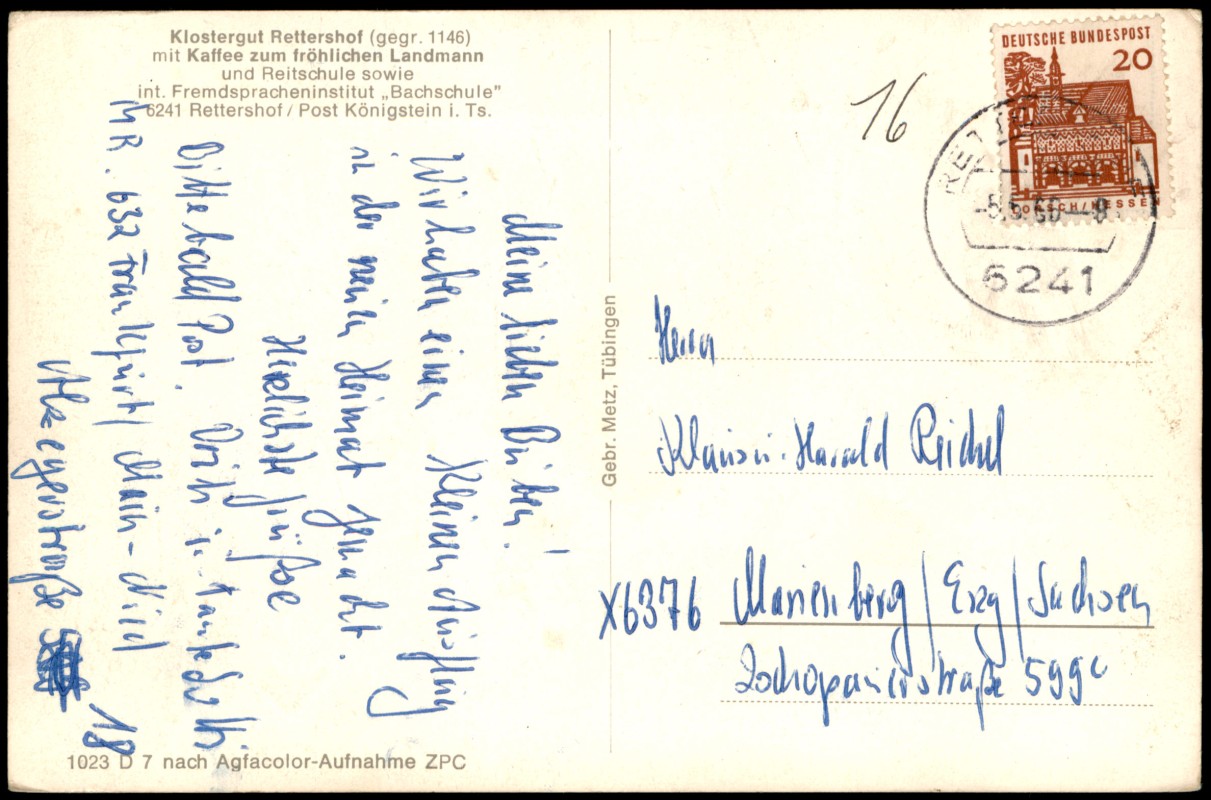 Klostergut Rettershof (gegr. 1146)
mit Kaffee zum fröhlichen Landmann
und Reitschule sowie
int. Fremdspracheninstitut „Bachschule"
6241 Rettershof / Post Königstein i. Ts.
Meine lieben Buben!
Wir haben einen kleinen Ausflug
in der neuen Heimat gemacht.
Herzlichste Grüße
Bitte bald Post.
632 Frankfurt/Main-Nied
18
1023 D 7 nach Agfacolor-Aufnahme ZPC
Gebr. Metz, Tübingen
16
DEUTSCHE BUNDESPOST
20
LORSCH/HESSEN
6241
Herrn
Klaus u. Harald Reichel
X6376 Marienberg/Erzg/Sachsen
Zschopauerstraße 599c